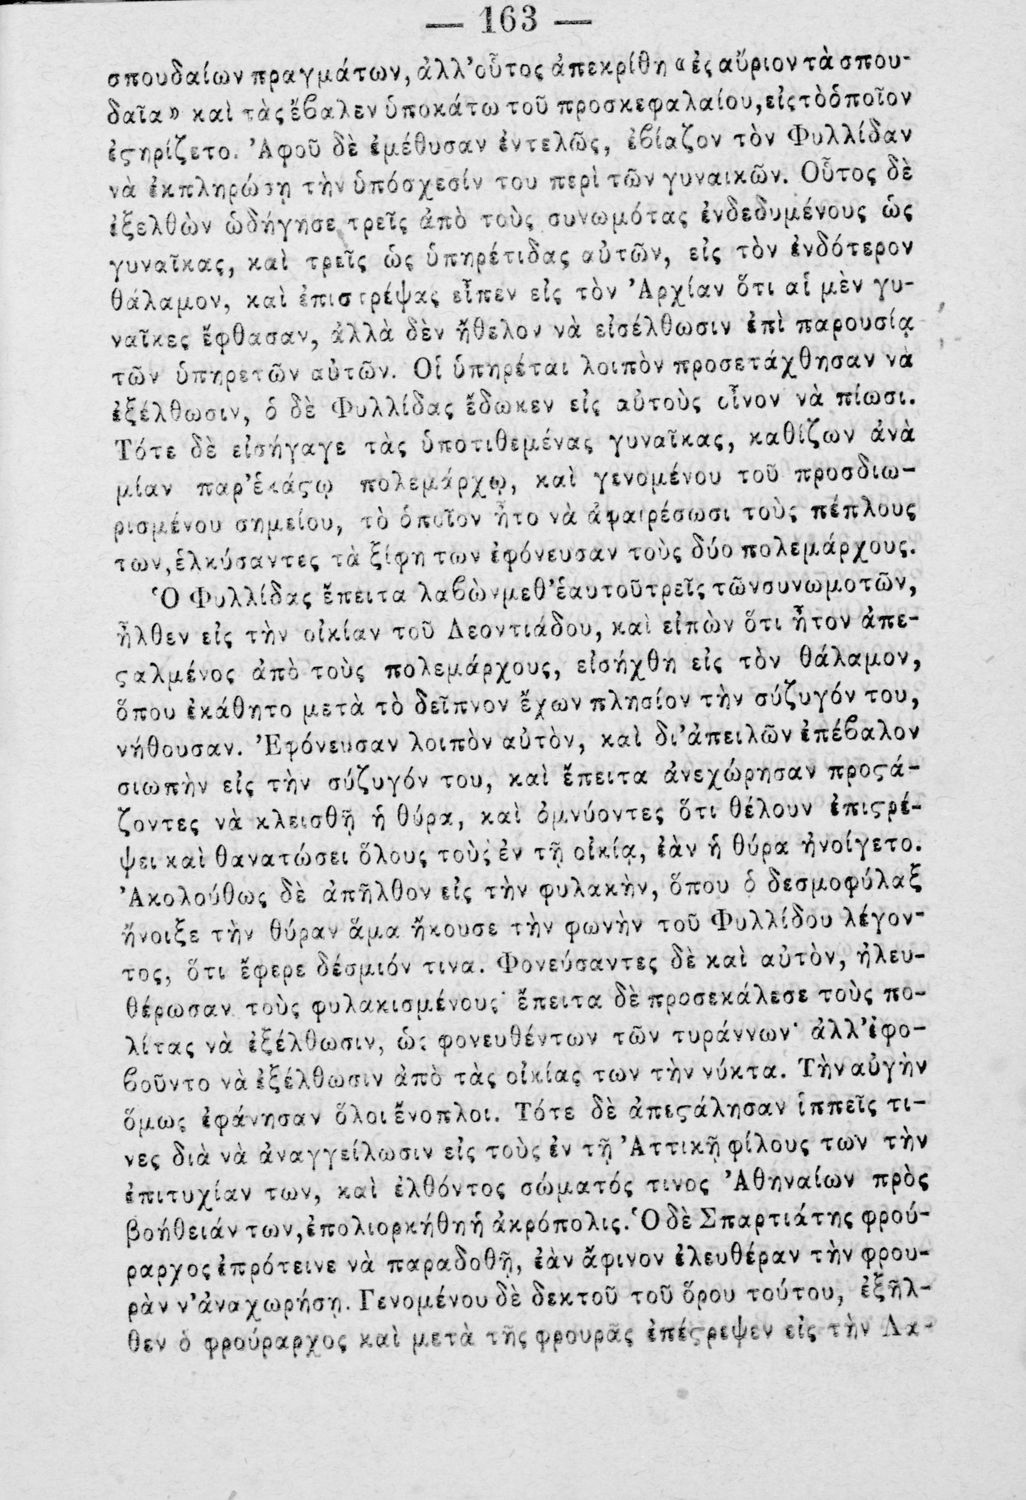 — 163 —
σπουδαίων πραγμάτων, ἀλλ'οὗτος ἀπεκρίθη «ἐς αὔριον τὰ σπου-
δαῖα» καὶ τὰς ἔβαλεν ὑποκάτω τοῦ προσκεφαλαίου, εἰς τὸ ὁποῖον
ἐςηρίζετο. Ἀφοῦ δὲ ἐμέθυσαν ἐντελῶς, ἐβίαζον τὸν Φυλλίδαν
νὰ ἐκπληρώσῃ τὴν ὑπόσχεσίν του περὶ τῶν γυναικῶν. Οὗτος δὲ
ἐξελθὼν ὡδήγησε τρεῖς ἀπὸ τοὺς συνωμότας ἐνδεδυμένους ὡς
γυναῖκας, καὶ τρεῖς ὡς ὑπηρέτιδας αὐτῶν, εἰς τὸν ἐνδότερον
θάλαμον, καὶ ἐπιστρέψας εἶπεν εἰς τὸν Ἀρχίαν ὅτι αἱ μὲν γυ-
ναῖκες ἔφθασαν, ἀλλὰ δὲν ἤθελον νὰ εἰσέλθωσιν ἐπὶ παρουσίᾳ
τῶν ὑπηρετῶν αὐτῶν. Οἱ ὑπηρέται λοιπὸν προσετάχθησαν νὰ
ἐξέλθωσιν, ὁ δὲ Φυλλίδας ἔδωκεν εἰς αὐτοὺς οἶνον νὰ πίωσι.
Τότε δὲ εἰσήγαγε τὰς ὑποτιθεμένας γυναῖκας, καθίζων ἀνὰ
μίαν παρ'ἑκάςῳ πολεμάρχῳ, καὶ γενομένου τοῦ προσδιω-
ρισμένου σημείου, τὸ ὁποῖον ἦτο νὰ ἀφαιρέσωσι τοὺς πέπλους
των, ἑλκύσαντες τὰ ξίφη των ἐφόνευσαν τοὺς δύο πολεμάρχους.
Ὁ Φυλλίδας ἔπειτα λαβὼν μεθ'ἑαυτοῦ τρεῖς τῶν συνωμοτῶν,
ἦλθεν εἰς τὴν οἰκίαν τοῦ Λεοντιάδου, καὶ εἰπὼν ὅτι ἦτον ἀπε-
ςαλμένος ἀπὸ τοὺς πολεμάρχους, εἰσήχθη εἰς τὸν θάλαμον,
ὅπου ἐκάθητο μετὰ τὸ δεῖπνον ἔχων πλησίον τὴν σύζυγόν του,
νήθουσαν. Ἐφόνευσαν λοιπὸν αὐτὸν, καὶ δι'ἀπειλῶν ἐπέβαλον
σιωπὴν εἰς τὴν σύζυγόν του, καὶ ἔπειτα ἀνεχώρησαν προςά-
ζοντες νὰ κλεισθῇ ἡ θύρα, καὶ ὀμνύοντες ὅτι θέλουν ἐπιςρέ-
ψει καὶ θανατώσει ὅλους τοὺς ἐν τῇ οἰκίᾳ, ἐὰν ἡ θύρα ἠνοίγετο.
Ἀκολούθως δὲ ἀπῆλθον εἰς τὴν φυλακὴν, ὅπου ὁ δεσμοφύλαξ
ἤνοιξε τὴν θύραν ἅμα ἤκουσε τὴν φωνὴν τοῦ Φυλλίδου λέγον-
τος, ὅτι ἔφερε δέσμιόν τινα. Φονεύσαντες δὲ καὶ αὐτὸν, ἠλευ-
θέρωσαν τοὺς φυλακισμένους· ἔπειτα δὲ προσεκάλεσε τοὺς πο-
λίτας νὰ ἐξέλθωσιν, ὡς φονευθέντων τῶν τυράννων· ἀλλ'ἐφο-
βοῦντο νὰ ἐξέλθωσιν ἀπὸ τὰς οἰκίας των τὴν νύκτα. Τὴν αὐγὴν
ὅμως ἐφάνησαν ὅλοι ἔνοπλοι. Τότε δὲ ἀπεςάλησαν ἱππεῖς τι-
νες διὰ νὰ ἀναγγείλωσιν εἰς τοὺς ἐν τῇ Ἀττικῇ φίλους των τὴν
ἐπιτυχίαν των, καὶ ἐλθόντος σώματός τινος Ἀθηναίων πρὸς
βοήθειάν των, ἐπολιορκήθη ἡ ἀκρόπολις. Ὁ δὲ Σπαρτιάτης φρού-
ραρχος ἐπρότεινε νὰ παραδοθῇ, ἐὰν ἄφινον ἐλευθέραν τὴν φρου-
ρὰν ν'ἀναχωρήσῃ. Γενομένου δὲ δεκτοῦ τοῦ ὅρου τούτου, ἐξῆλ-
θεν ὁ φρούραρχος καὶ μετὰ τῆς φρουρᾶς ἐπέςρεψεν εἰς τὴν Λα-